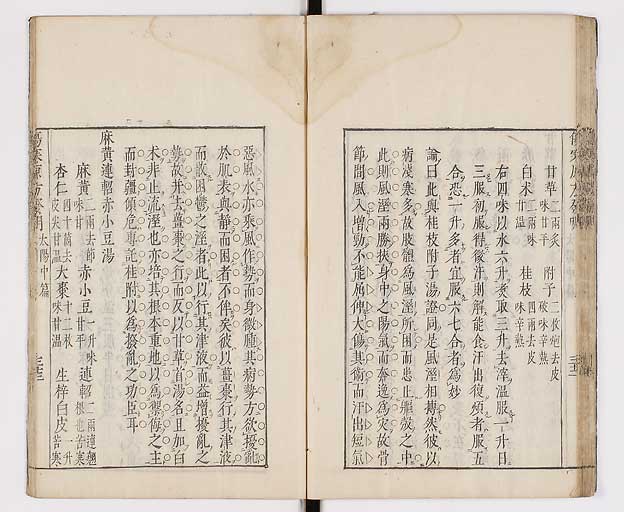 甘草二兩炙味甘平　附子二枚炮去皮破味辛熱
白朮二兩味甘溫　桂枝四兩去皮味辛熱
右四味以水六升煮取三升去滓溫服一升日
三服初服得微汗則解能食汗出復煩者服五
合恐一升多者宜服六七合者為妙
論曰此與桂枝附子湯證同是風溼相搏然彼以
病淺寒多故肢體為風溼所困而患止軀殼之中
此則風溼兩勝挾身中之陽氣而奔逸為災故骨
節間風入增勁不能屈伸大傷其衛而汗出短氣
惡風水亦乘風作勢而身微腫其病勢方欲擾亂
於肌表與靜而困者不侔矣彼以薑棗行其津液
而散困鬱之溼者此以行其津液而益增擾亂之
勢故并去薑棗之行而反以甘草首湯名且加白
朮非止流溼也亦培其根本重地以為禦侮之主
而封疆傾危專託桂附以為撥亂之功臣耳
麻黃連軺赤小豆湯
麻黃二兩去節味甘　赤小豆一升味甘平　連軺二兩連翹根也苦寒
杏仁四十箇去皮尖甘溫　大棗十二枚味甘溫　生梓白皮一升苦寒
太陽中篇